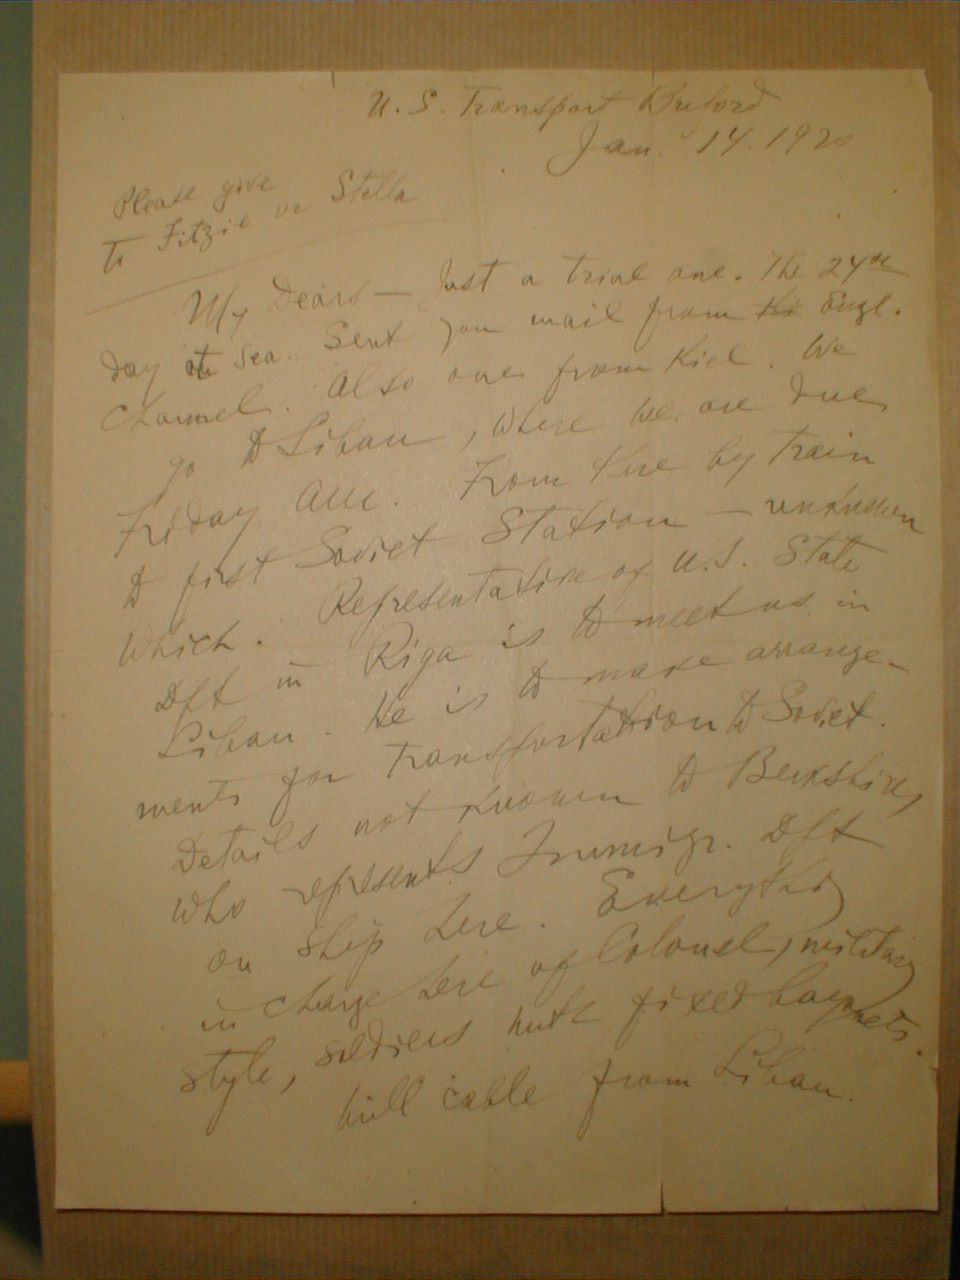 U.S. Transport Buford
Jan. 14. 1920
Please give
to Fitzie or Stella
My Dears — Just a trial one. The 24th
day at sea. Sent you mail from Ki Engl.
Channel. Also ones from Kiel. We
go to Libau, where we are due
Friday AM. From there by train
to first Soviet Station — unknown
which. Representative of U.S. State
Dft in Riga is to meet us in
Libau. He is to make arrange-
ments for transportation to Soviet.
Details not known to Berkshire,
who represents Immigr. Dft
on ship here. Everythi
in charge here of Colonel, military
style, soldiers with fixed bayonets.
Will cable from Libau.